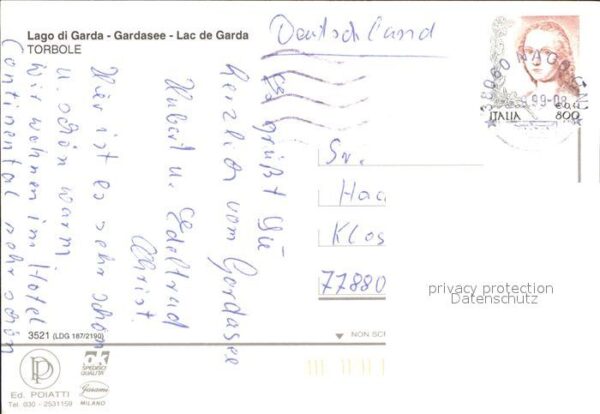 Lago di Garda - Gardasee - Lac de Garda
TORBOLE
Deutschland
€ 0,41
ITALIA 800
Es grüßt Sie
herzlich vom Gardasee
Hubert u. Edeltrud
Christ.
Hier ist es sehr schön
u. schön warm.
Wir wohnen im Hotel
Continental sehr schön
Sr.
Haa
Klos
77880
privacy protection
Datenschutz
3521 (LDG 187/2190)
NON SCR
PP
Ed. POIATTI
Tel. 030 - 2531159
ok
SPEDISCI
QUALITÀ
MILANO